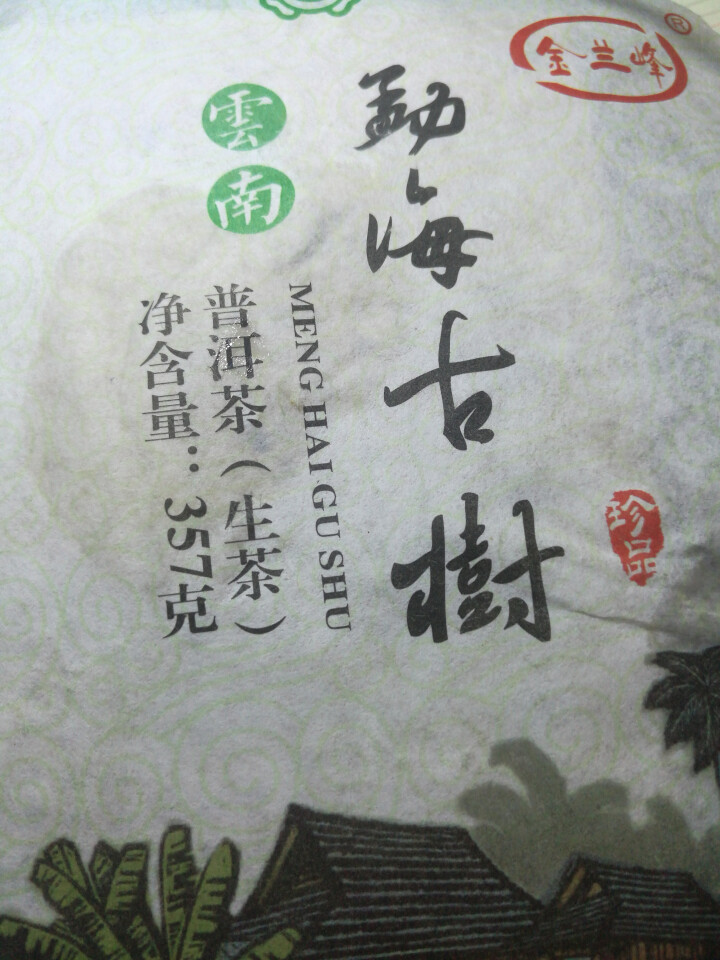 金兰峰®
勐海古樹
MENG HAI GU SHU
雲南
普洱茶（生茶）
净含量：357克
珍品